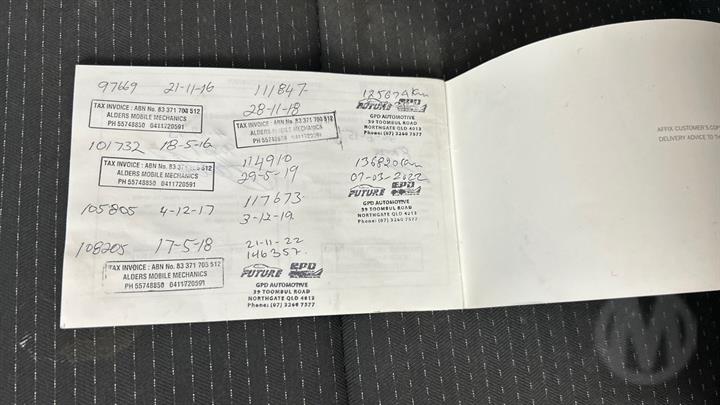 97669 21-11-16
TAX INVOICE : ABN No. 83 371 703 512
ALDERS MOBILE MECHANICS
PH 55748850 0411720591
101732 18-5-16
TAX INVOICE : ABN No. 83 371 703 512
ALDERS MOBILE MECHANICS
PH 55748850 0411720591
105805 4-12-17
108205 17-5-18
TAX INVOICE : ABN No. 83 371 703 512
ALDERS MOBILE MECHANICS
PH 55748850 0411720591
111847
28-11-18
TAX INVOICE : ABN No. 83 371 703 512
ALDERS MOBILE MECHANICS
PH 55748850 0411720591
114910
29-5-19
117673
3-12-19
21-11-22
146357.
FUTURE GPD
GPD AUTOMOTIVE
39 TOOMBUL ROAD
NORTHGATE QLD 4013
Phone: (07) 3260 7577
125679km
FUTURE GPD
GPD AUTOMOTIVE
39 TOOMBUL ROAD
NORTHGATE QLD 4013
Phone: (07) 3260 7577
136820km
07-03-2022
FUTURE GPD
GPD AUTOMOTIVE
39 TOOMBUL ROAD
NORTHGATE QLD 4013
Phone: (07) 3260 7577
AFFIX CUSTOMER'S
DELIVERY ADVICE TO
M